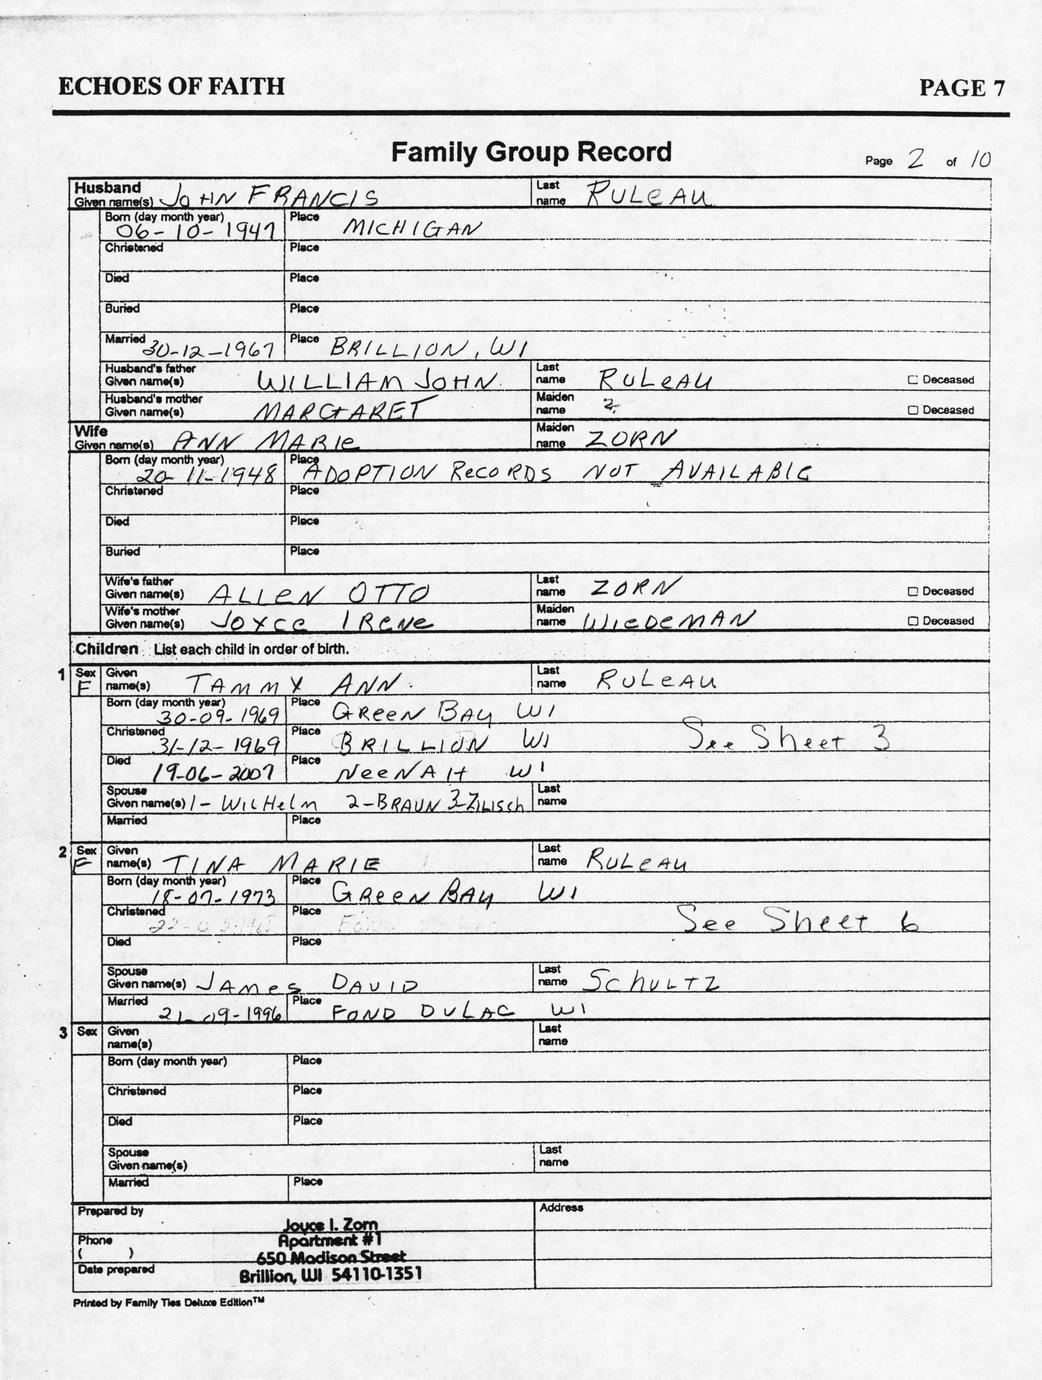 ECHOES OF FAITH PAGE 7
Family Group Record Page 2 of 10
Husband
Given name(s) JOHN FRANCIS Last name RULEAU
Born (day month year) 06-10-1947 Place MICHIGAN
Christened Place
Died Place
Buried Place
Married 30-12-1967 Place BRILLION, WI
Husband's father Given name(s) WILLIAM JOHN Last name RULEAU Deceased
Husband's mother Given name(s) MARGARET Maiden name ? Deceased
Wife
Given name(s) ANN MARIE Maiden name ZORN
Born (day month year) 20-11-1948 Place ADOPTION RECORDS NOT AVAILABLE
Christened Place
Died Place
Buried Place
Wife's father Given name(s) ALLEN OTTO Last name ZORN Deceased
Wife's mother Given name(s) JOYCE IRENE Maiden name WIEDEMAN Deceased
Children List each child in order of birth.
1 Sex F Given name(s) TAMMY ANN Last name RULEAU
Born (day month year) 30-09-1969 Place GREEN BAY WI
Christened 31-12-1969 Place BRILLION WI See Sheet 3
Died 19-06-2007 Place NEENAH WI
Spouse Given name(s) 1-WILHELM 2-BRAUN 3-ZILISCH Last name
Married Place
2 Sex F Given name(s) TINA MARIE Last name RULEAU
Born (day month year) 18-07-1973 Place GREEN BAY WI
Christened Place See Sheet 6
Died Place
Spouse Given name(s) JAMES DAVID Last name SCHULTZ
Married 21-09-1996 Place FOND DULAC WI
3 Sex Given name(s) Last name
Born (day month year) Place
Christened Place
Died Place
Spouse Given name(s) Last name
Married Place
Prepared by Address
Joyce I. Zorn
Phone ( ) Apartment #1
650 Madison Street
Date prepared Brillion, WI 54110-1351
Printed by Family Ties Deluxe Edition™